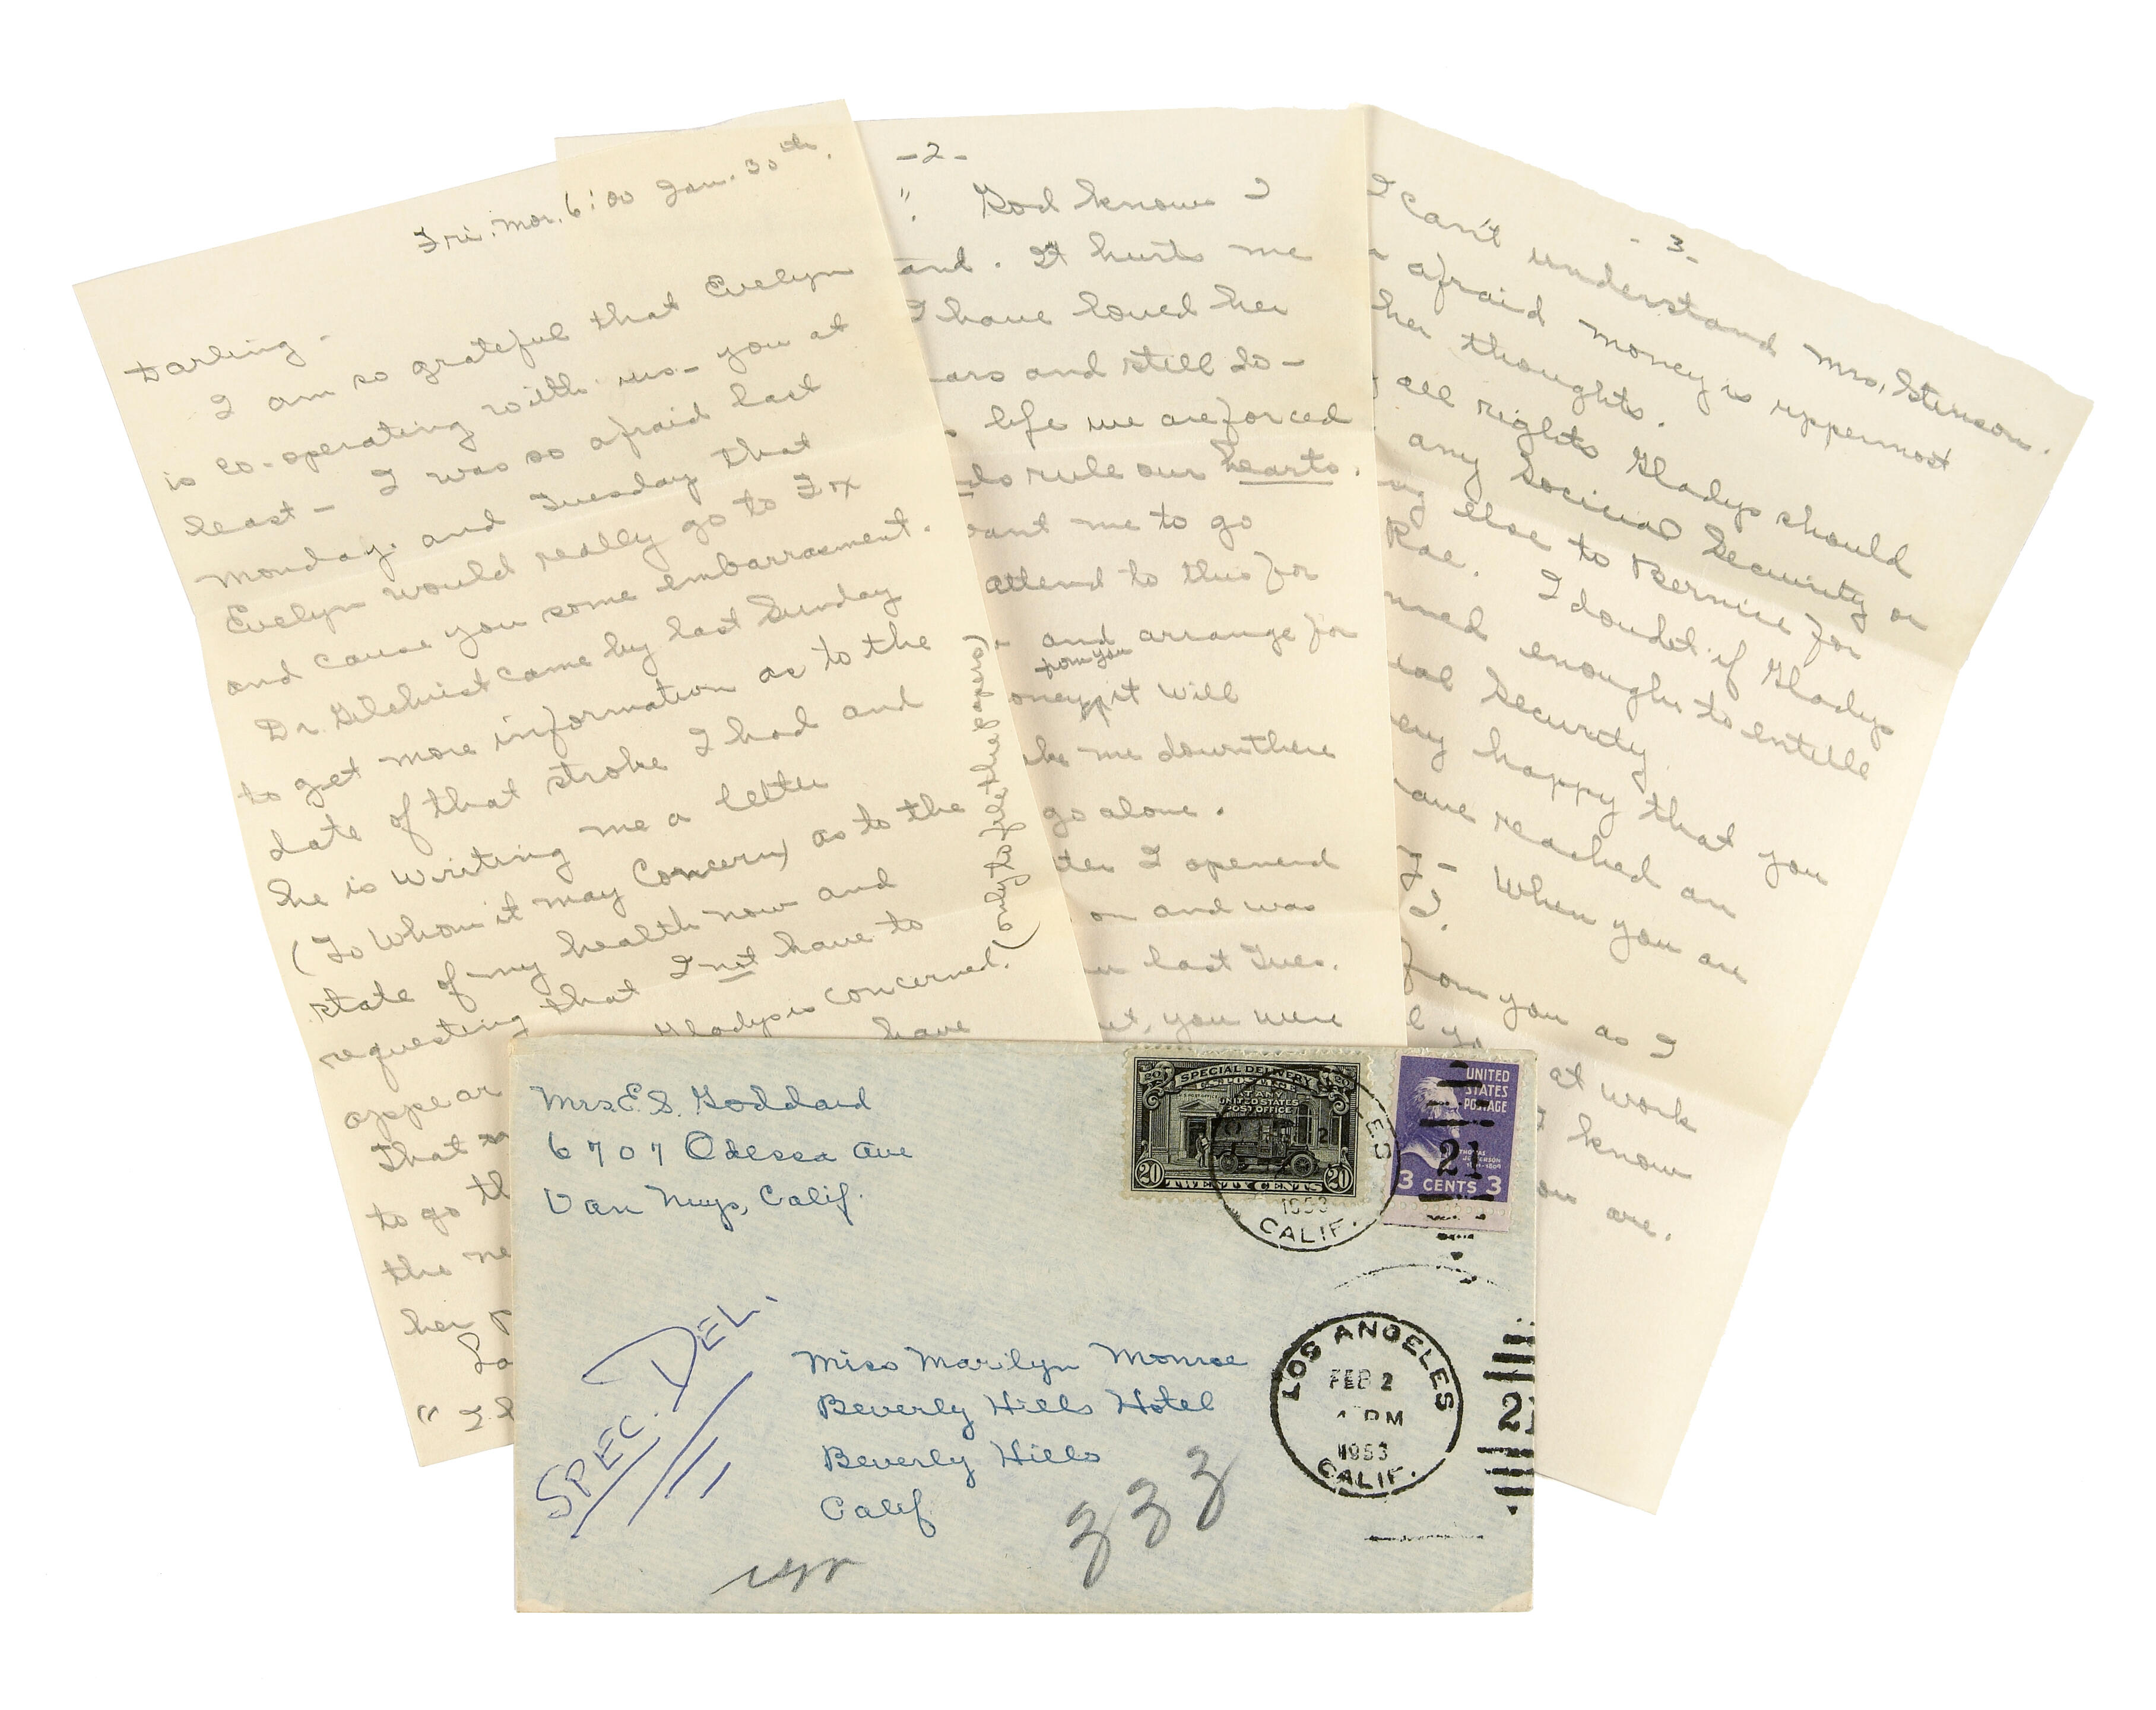 Fri. Mor. 6:00 Jan. 30th.
Darling -
I am so grateful that Evelyn
is co-operating with us - you at
least - I was so afraid last
Monday and Tuesday that
Evelyn would really go to Fox
and cause you some embarrasment.
Dr. Gilchrist came by last Sunday
to get more information as to the
date of that stroke I had and
he is writing me a letter
(To Whom it may Concern) as to the
state of my health now and
requesting that I not have to
appear
Gladys is concerned.
(only to file the papers)
have
That
to go th
the ne
her
So
" I
- 2 -
". God knows I
and. It hurts me
I have loved her
ars and still do -
life we are forced
ds rule our hearts.
want me to go
attend to this for
and arrange for
from you
oney it will
ke me down there
go alone.
ter I opened
on and was
last Tues.
ut, you were
- 3 -
I can't understand Mrs. Stinson.
afraid money is uppermost
her thoughts.
all rights Gladys should
any Social Security or
ng else to Bernice for
Rae. I doubt if Gladys
rned enough to entitle
ial Security
ery happy that you
ave reached an
When you are
I.
from you as I
at work
know
ou are.
Mrs E. S. Goddard
6707 Odessa Ave
Van Nuys, Calif.
SPECIAL DELIVERY
U.S. POSTAGE
AT ANY
UNITED STATES
POST OFFICE
20 20
TWENTY CENTS
ES
1953
CALIF.
UNITED
STATES
POSTAGE
THOMAS
JEFFERSON
1801-1809
21
3 CENTS 3
SPEC. DEL.
Miss Marilyn Monroe
Beverly Hills Hotel
Beverly Hills
Calif
LOS ANGELES
FEB 2
PM
1953
CALIF.
21
333